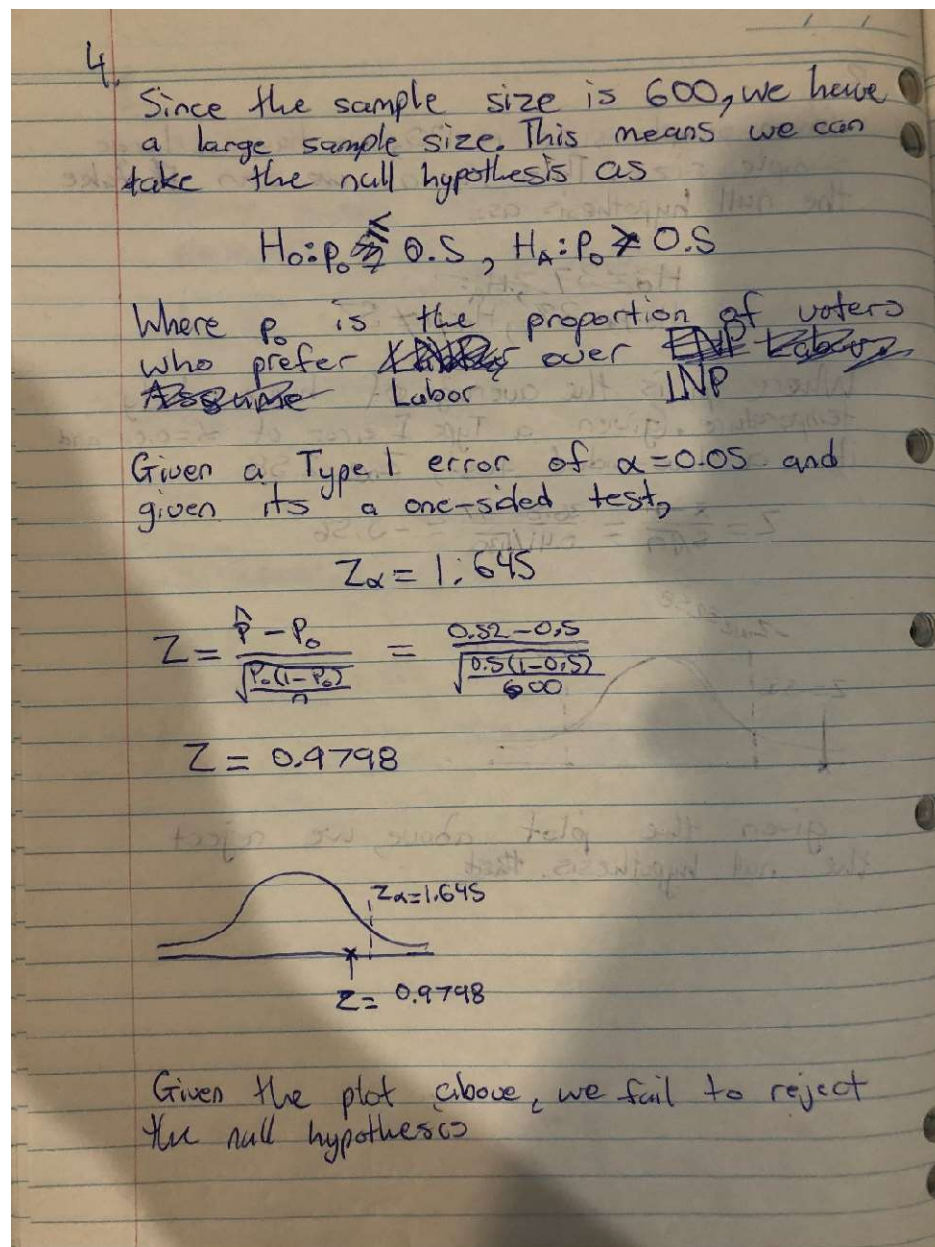 4.
Since the sample size is 600, we have
a large sample size. This means we can
take the null hypothesis as
H₀: p₀ ≤ 0.5, H_A: p₀ > 0.5
Where p₀ is the proportion of voters
who prefer over
Assume Labor LNP
Given a Type 1 error of α=0.05 and
given its a one-sided test,
Zα = 1.645
Z = (p̂ - P₀) / √(P₀(1-P₀)/n) = (0.52-0.5) / √(0.5(1-0.5)/600)
Z = 0.9798
Zα=1.645
Z= 0.9798
Given the plot above, we fail to reject
the null hypothesis